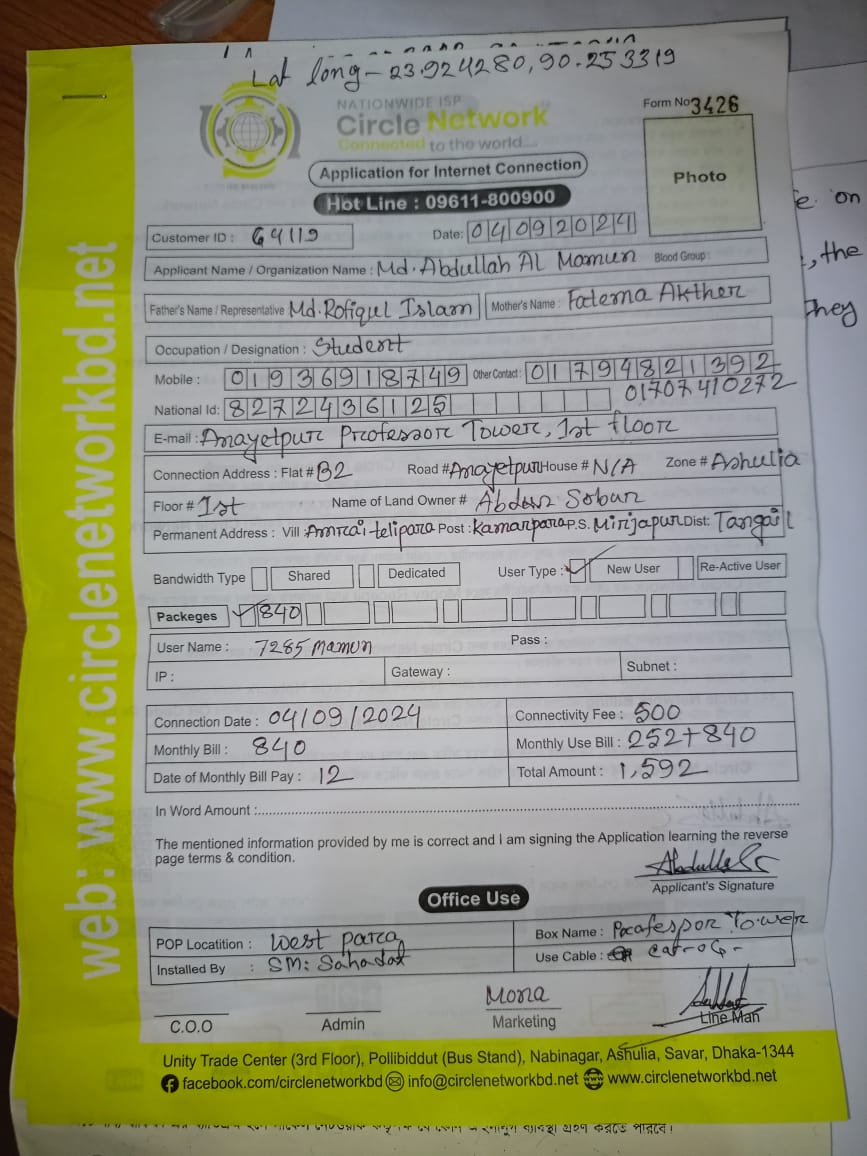 Lat long - 23.924280, 90.253319
NATIONWIDE ISP
Circle Network
Connected to the world....
Form No 3426
Application for Internet Connection
Photo
Hot Line : 09611-800900
Customer ID : G4119
Date: 04092024
Applicant Name / Organization Name : Md. Abdullah Al Mamun Blood Group :
Father's Name / Representative Md. Rofiqul Islam Mother's Name : Fatema Akther
Occupation / Designation : Student
Mobile : 01936918749 Other Contact : 01794821392
01707410272
National Id: 8272436125
E-mail : Anayetpur Professor Tower, 1st floor
Connection Address : Flat # B2 Road # Anayetpur House # N/A Zone # Ashulia
Floor # 1st Name of Land Owner # Abdur Sobur
Permanent Address : Vill : Amrai telipara Post : Kamarpara P.S. Mirjapur Dist: Tangail
Bandwidth Type Shared Dedicated User Type : New User Re-Active User
Packeges 840
User Name : 7285 mamun Pass :
IP : Gateway : Subnet :
Connection Date : 04/09/2024 Connectivity Fee : 500
Monthly Bill : 840 Monthly Use Bill : 252+840
Date of Monthly Bill Pay : 12 Total Amount : 1,592
In Word Amount :
The mentioned information provided by me is correct and I am signing the Application learning the reverse
page terms & condition.
Applicant's Signature
Office Use
POP Locatition : West para Box Name : Tower
Installed By : SM: Sahadat Use Cable : cat-06-
C.O.O Admin Mona Marketing Line Man
Unity Trade Center (3rd Floor), Pollibiddut (Bus Stand), Nabinagar, Ashulia, Savar, Dhaka-1344
facebook.com/circlenetworkbd info@circlenetworkbd.net www.circlenetworkbd.net
web: www.circlenetworkbd.net
on
, the
They